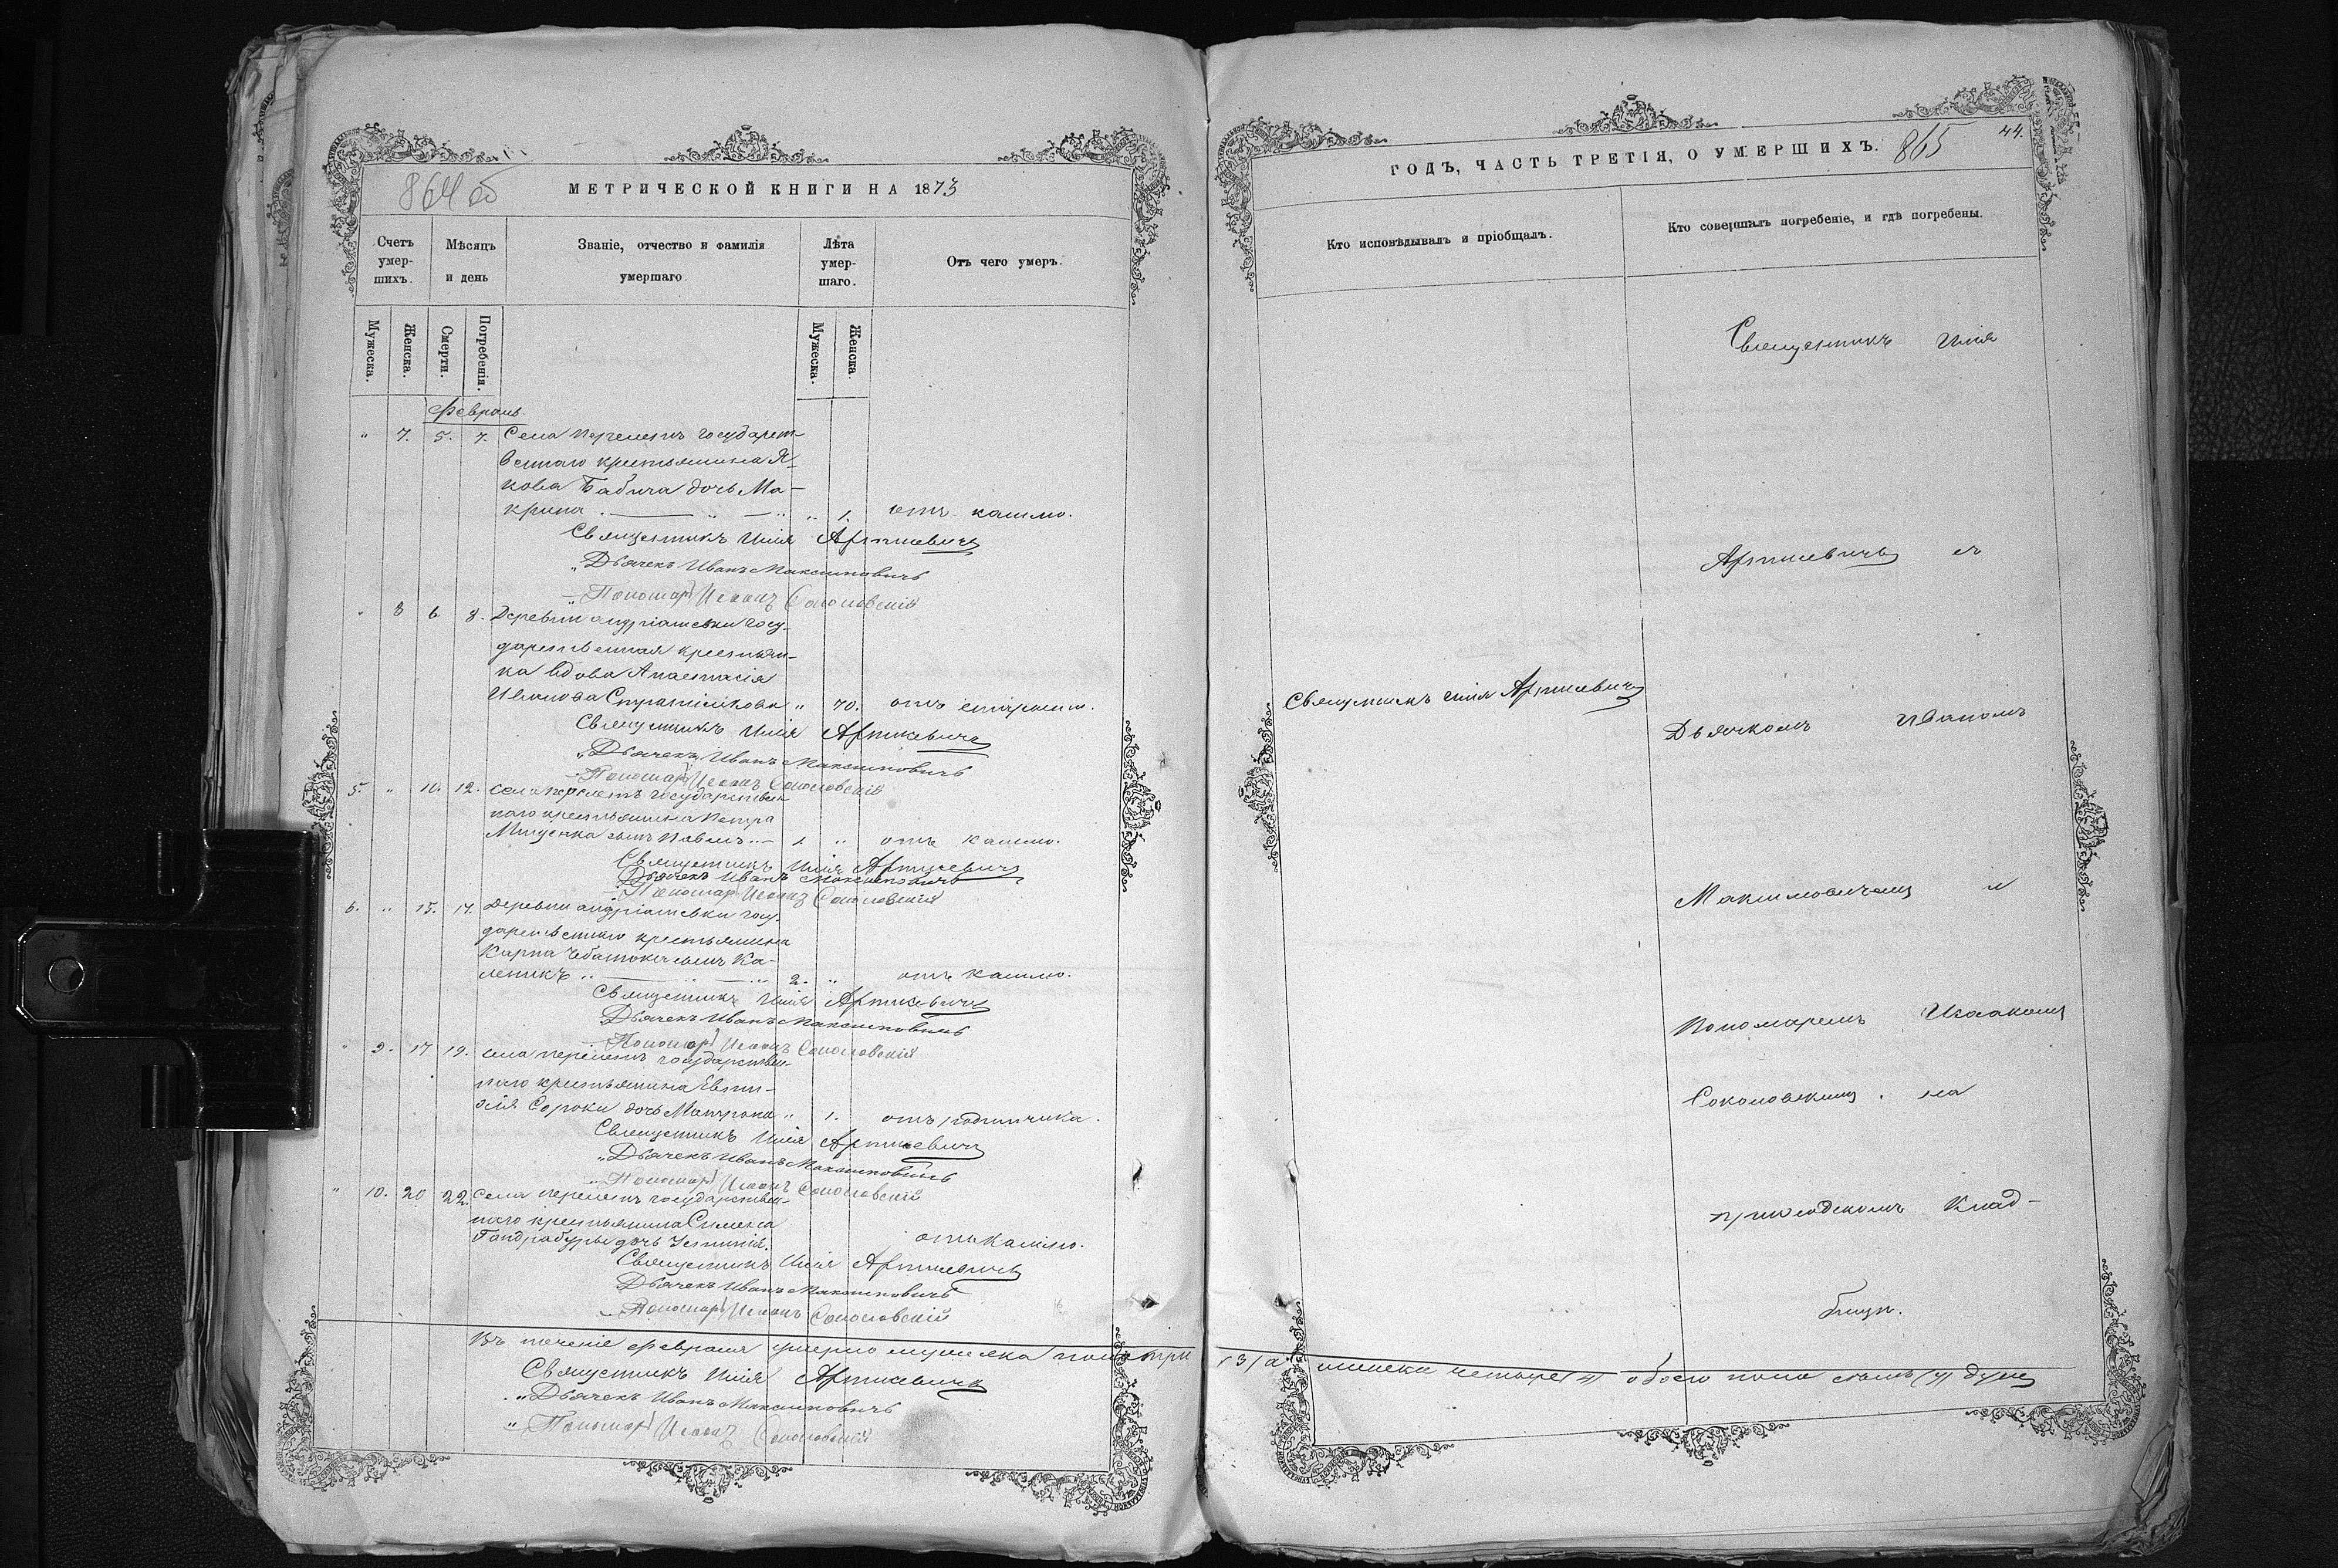 864 об
МЕТРИЧЕСКОЙ КНИГИ НА 1873
Счетъ умер-шихъ.
Мѣсяцъ и день
Званіе, отчество и фамилія умершаго.
Лѣта умер-шаго.
Отъ чего умеръ.
Мужеска.
Женска.
Смерти.
Погребенія.
Мужеска.
Женска.
Февраль
" 7. 5. 7. Села Перелетъ государст-
веннаго крестьянина Я-
кова Бабича дочь Ма-
крина " 1. отъ кашлю.
Священникъ Илія Артисевичъ
Дьячекъ Иванъ Максимовичъ
Пономарь Исаакъ Соколовскій
" 8 6 8. Деревни Андріашевки госу-
дарственная крестьян-
ка вдова Анастасія
Иванова " 70. отъ старости.
Священникъ Илія Артисевичъ
Дьячекъ Иванъ Максимовичъ
Пономарь Исаакъ Соколовскій
5. " 10. 12. Села Перелетъ государствен
наго крестьянина Петра
Мищенка сынъ Павелъ 1 " отъ кашлю.
Священникъ Илія Артисевичъ
Дьячекъ Иванъ Максимовичъ
Пономарь Исаакъ Соколовскій
6. " 15. 17. Деревни Андріашевки госу-
дарственнаго крестьянина
Карпа сынъ Ка-
леникъ 2. " отъ кашлю.
Священникъ Илія Артисевичъ
Дьячекъ Иванъ Максимовичъ
Пономарь Исаакъ Соколовскій
" 9. 17 19. Села Перелетъ государствен-
наго крестьянина Евти-
хія Сороки дочь Матрона " 1. отъ родимчика.
Священникъ Илія Артисевичъ
Дьячекъ Иванъ Максимовичъ
Пономарь Исаакъ Соколовскій
" 10. 20 22. Села Перелетъ государствен-
наго крестьянина Симеона
Гандрабуры дочь Устинія. отъ кашлю.
Священникъ Илія Артисевичъ
Дьячекъ Иванъ Максимовичъ
Пономарь Исаакъ Соколовскій
Въ теченіе Февраля умерло мужеска пола три
Священникъ Илія Артисевичъ
Дьячекъ Иванъ Максимовичъ
Пономарь Исаакъ Соколовскій
ГОДЪ, ЧАСТЬ ТРЕТІЯ, О УМЕРШИХЪ. 865 44.
Кто исповѣдывалъ и пріобщалъ.
Кто совершалъ погребеніе, и гдѣ погребены.
Священникъ Илія
Артисевичъ съ
Священникъ Илія Артисевичъ
Дьячкомъ Иваномъ
Максимовичемъ и
Пономаремъ Исаакомъ
Соколовскимъ. на
приходскомъ Клад-
бищѣ.
(3) а женска четыре (4) обоего пола семь (7) душъ